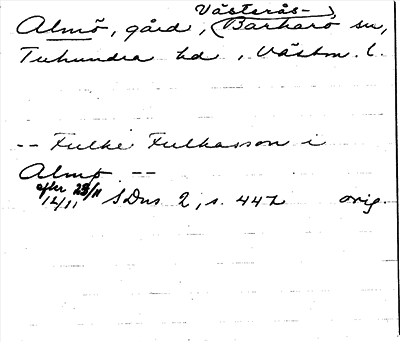 Västerås-
Almö, gård, (Barkarö sn,
Tuhundra hd, Västm. l.
-- Fulke Fulkasson i
Almø --
efter 25/11
1411 SDns 2, s. 442 orig.